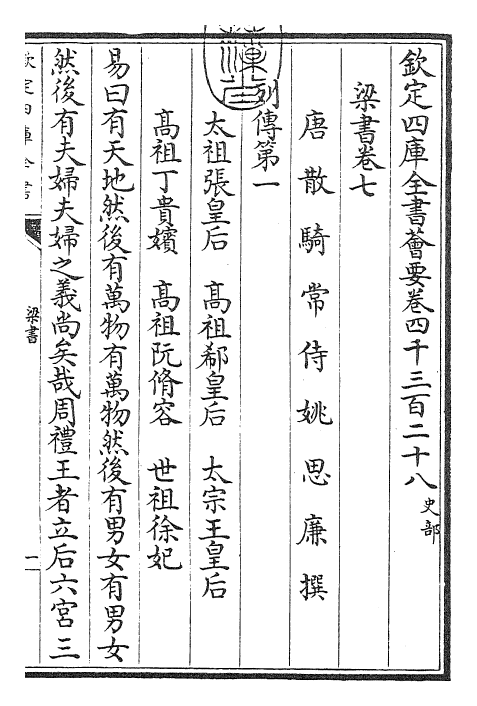 欽定四庫全書薈要卷四千三百二十八 史部
梁書卷七
唐散騎常侍姚思廉撰
列傳第一
太祖張皇后 髙祖郗皇后 太宗王皇后
髙祖丁貴嬪 髙祖阮脩容 世祖徐妃
易曰有天地然後有萬物有萬物然後有男女有男女
然後有夫婦夫婦之義尚矣哉周禮王者立后六宮三
欽定四庫全書
梁書
一